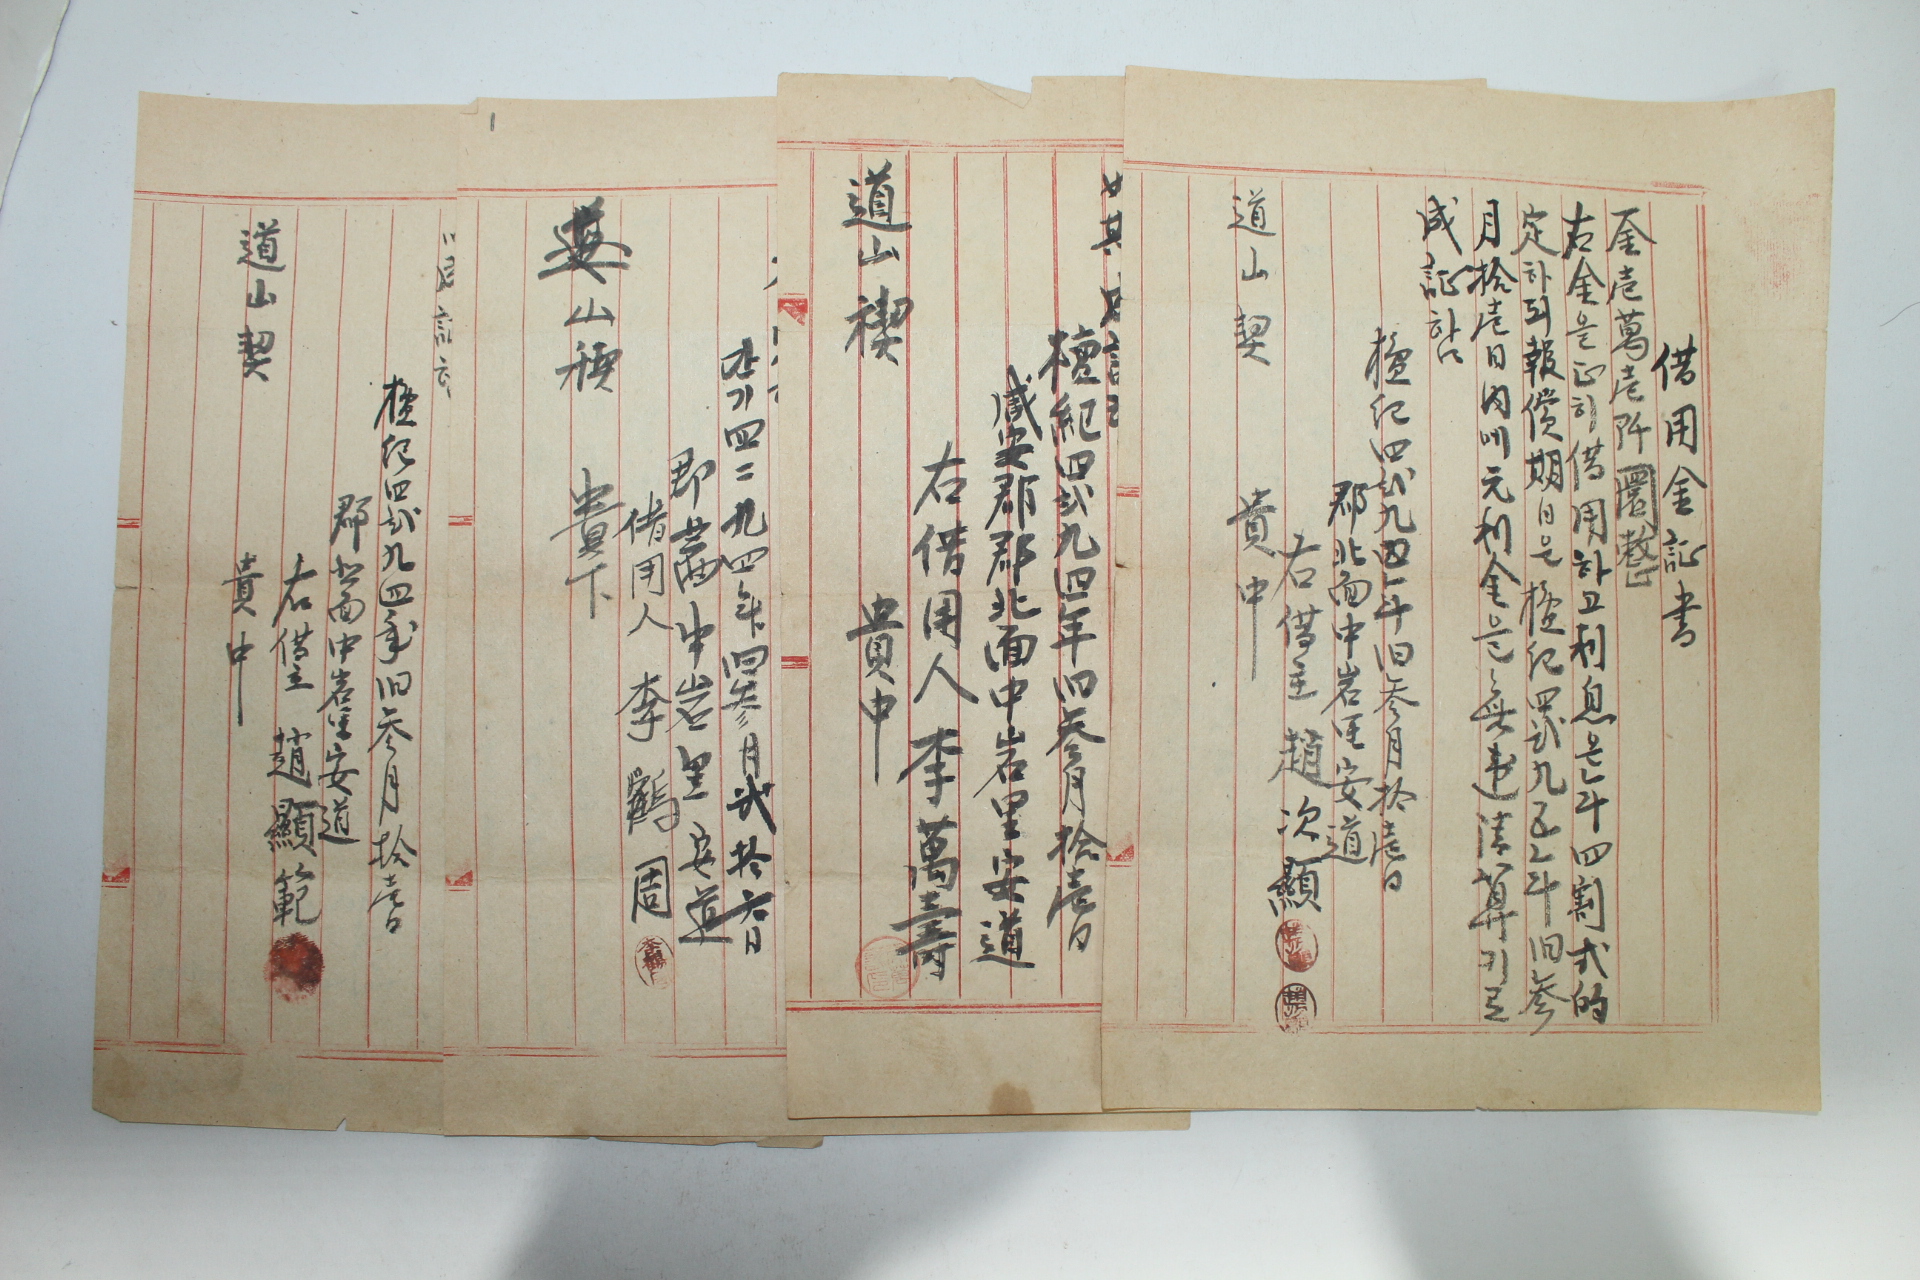 借用金証書
金壱萬壱阡圜整
右金은正히借用하고利息은年四割式的
定하되報償期日은檀紀四貳九五年旧參
月拾壱日內에元利金은無違淸算키로
成証함
檀紀四貳九四年旧參月拾壱日
郡北面中岩里安道
右借主 趙次顯
道山契 貴中
檀紀四貳九四年旧參月拾壱日
咸安郡郡北面中岩里安道
右借用人 李萬壽
道山禊 貴中
단기四二九四年旧參月貳拾六日
中岩里安道
借用人 李鶴周
山 貴下
檀紀四貳九四年旧參月拾壱日
郡北面中岩里安道
右借主 趙顯範
道山契 貴中